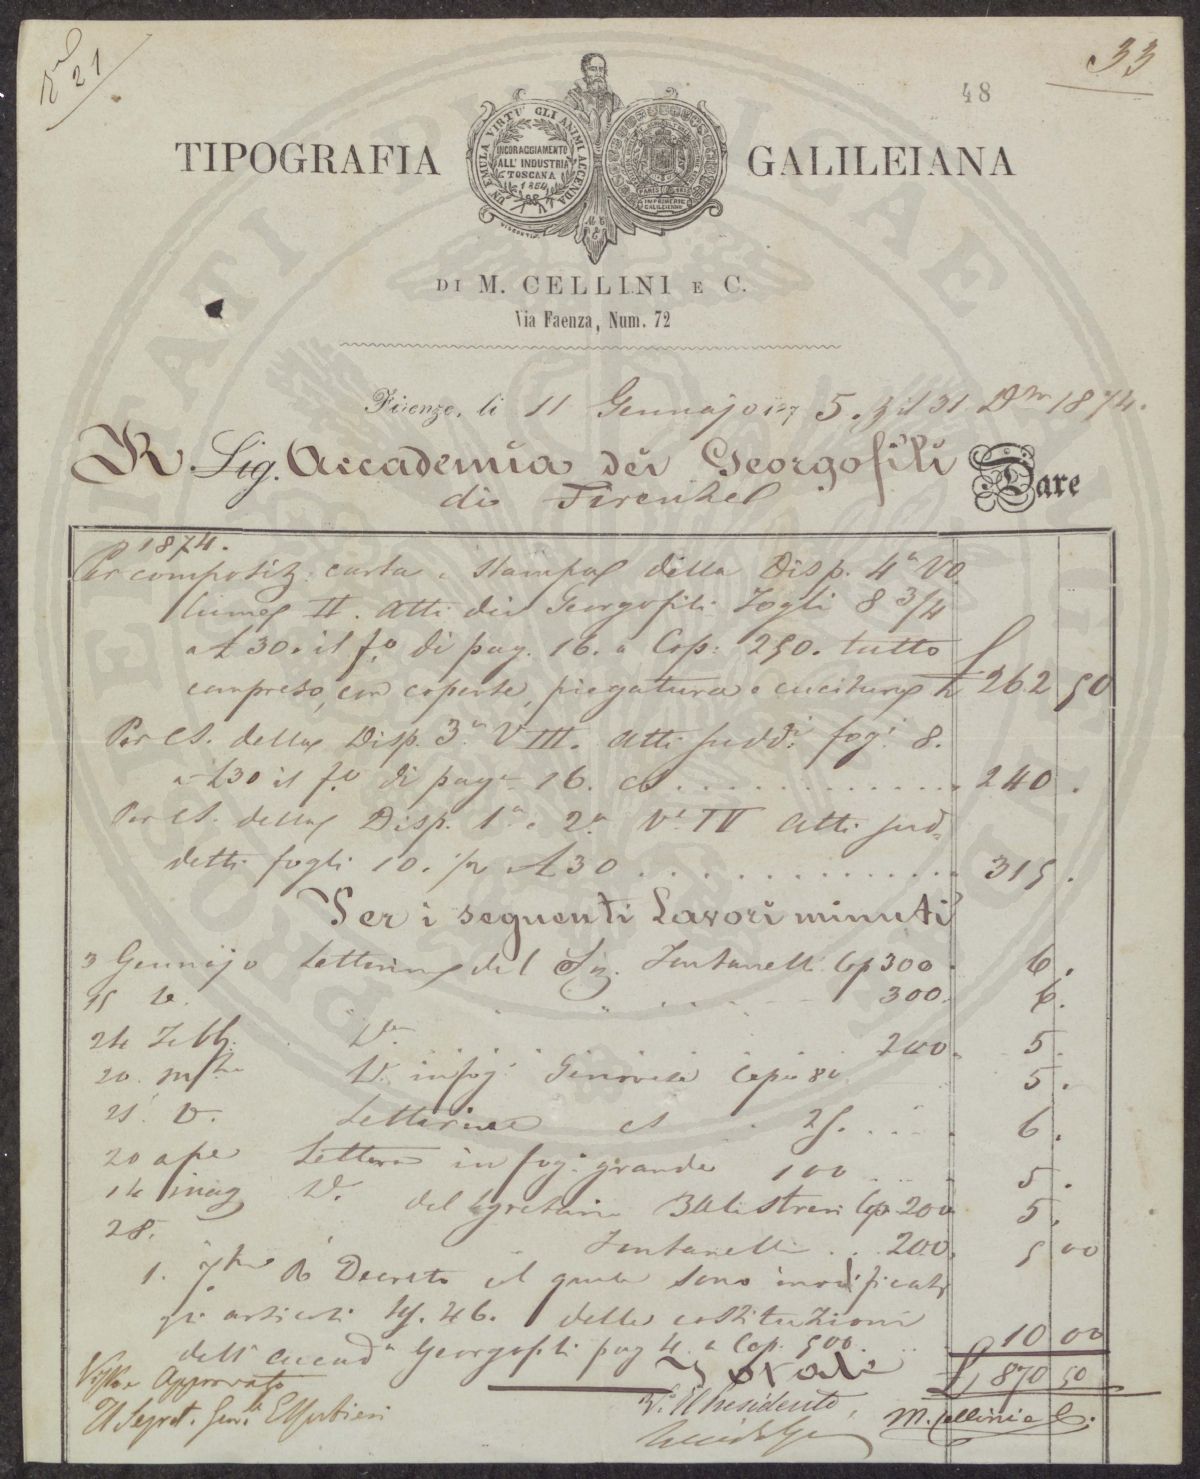 21
33
48
TIPOGRAFIA GALILEIANA
UN EMULA VIRTU' GLI ANIMI ACCENDA
INCORAGGIAMENTO
ALL' INDUSTRIA
TOSCANA
1854
IMPRIMERIE
GALILEIANA
DI M. CELLINI E C.
Via Faenza, Num. 72
Firenze, li 11 Gennajo 1875. 31 Dbre 1874.
R Sig. Accademia dei Georgofili Dare
di Firenze
1874.
Per composiz. carta e stampa della Disp. 4a Vo
lume II. Atti dei Georgofili Fogli 8 3/4
a £ 30. il fo. di pag. 16. a Cop: 250. tutto
compreso, con coperte, piegatura e cucitura £ 262 50
Per Cs. della Disp. 3a V III. Atti sudd.i fog.i 8.
a £30 il fo. di pag. 16. Cs . . . . 240 .
Per Cs. della Disp. 1a e 2a V. IV Atti sud=
detti fogli 10. 1/2 a £30 . . . . 315 .
Per i seguenti Lavori minuti
3 Gennajo Letterina del Sig. Fontanelli Cop 300 . 6 .
15 300. 6.
24 Febb. 200. 5.
20. in fog. Copie 80 5 .
21 Letterina Cs 25. . . . 6 .
20 ape Lettera in fog. grande 100 . . 5 .
14 mag D. del Segretario Balestreri Cop. 200 5.
28. Fontanelli . . 200. 5 00
1. Decreto al quale sono modificati
gli articoli 45. 46. delle costituzioni
dell' accad.a Georgofili pag 4. a Cop. 500. . . 10 00
Totale £ 870 50
Visto e Approvato
Il Segret. Gen.le
V. Il Presidente,
M. Cellini e C.